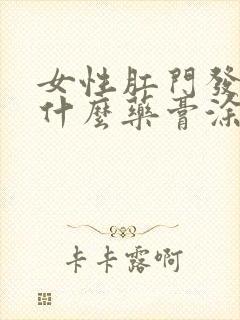 女性肛門發
什麼藥膏涂
卡卡露啊